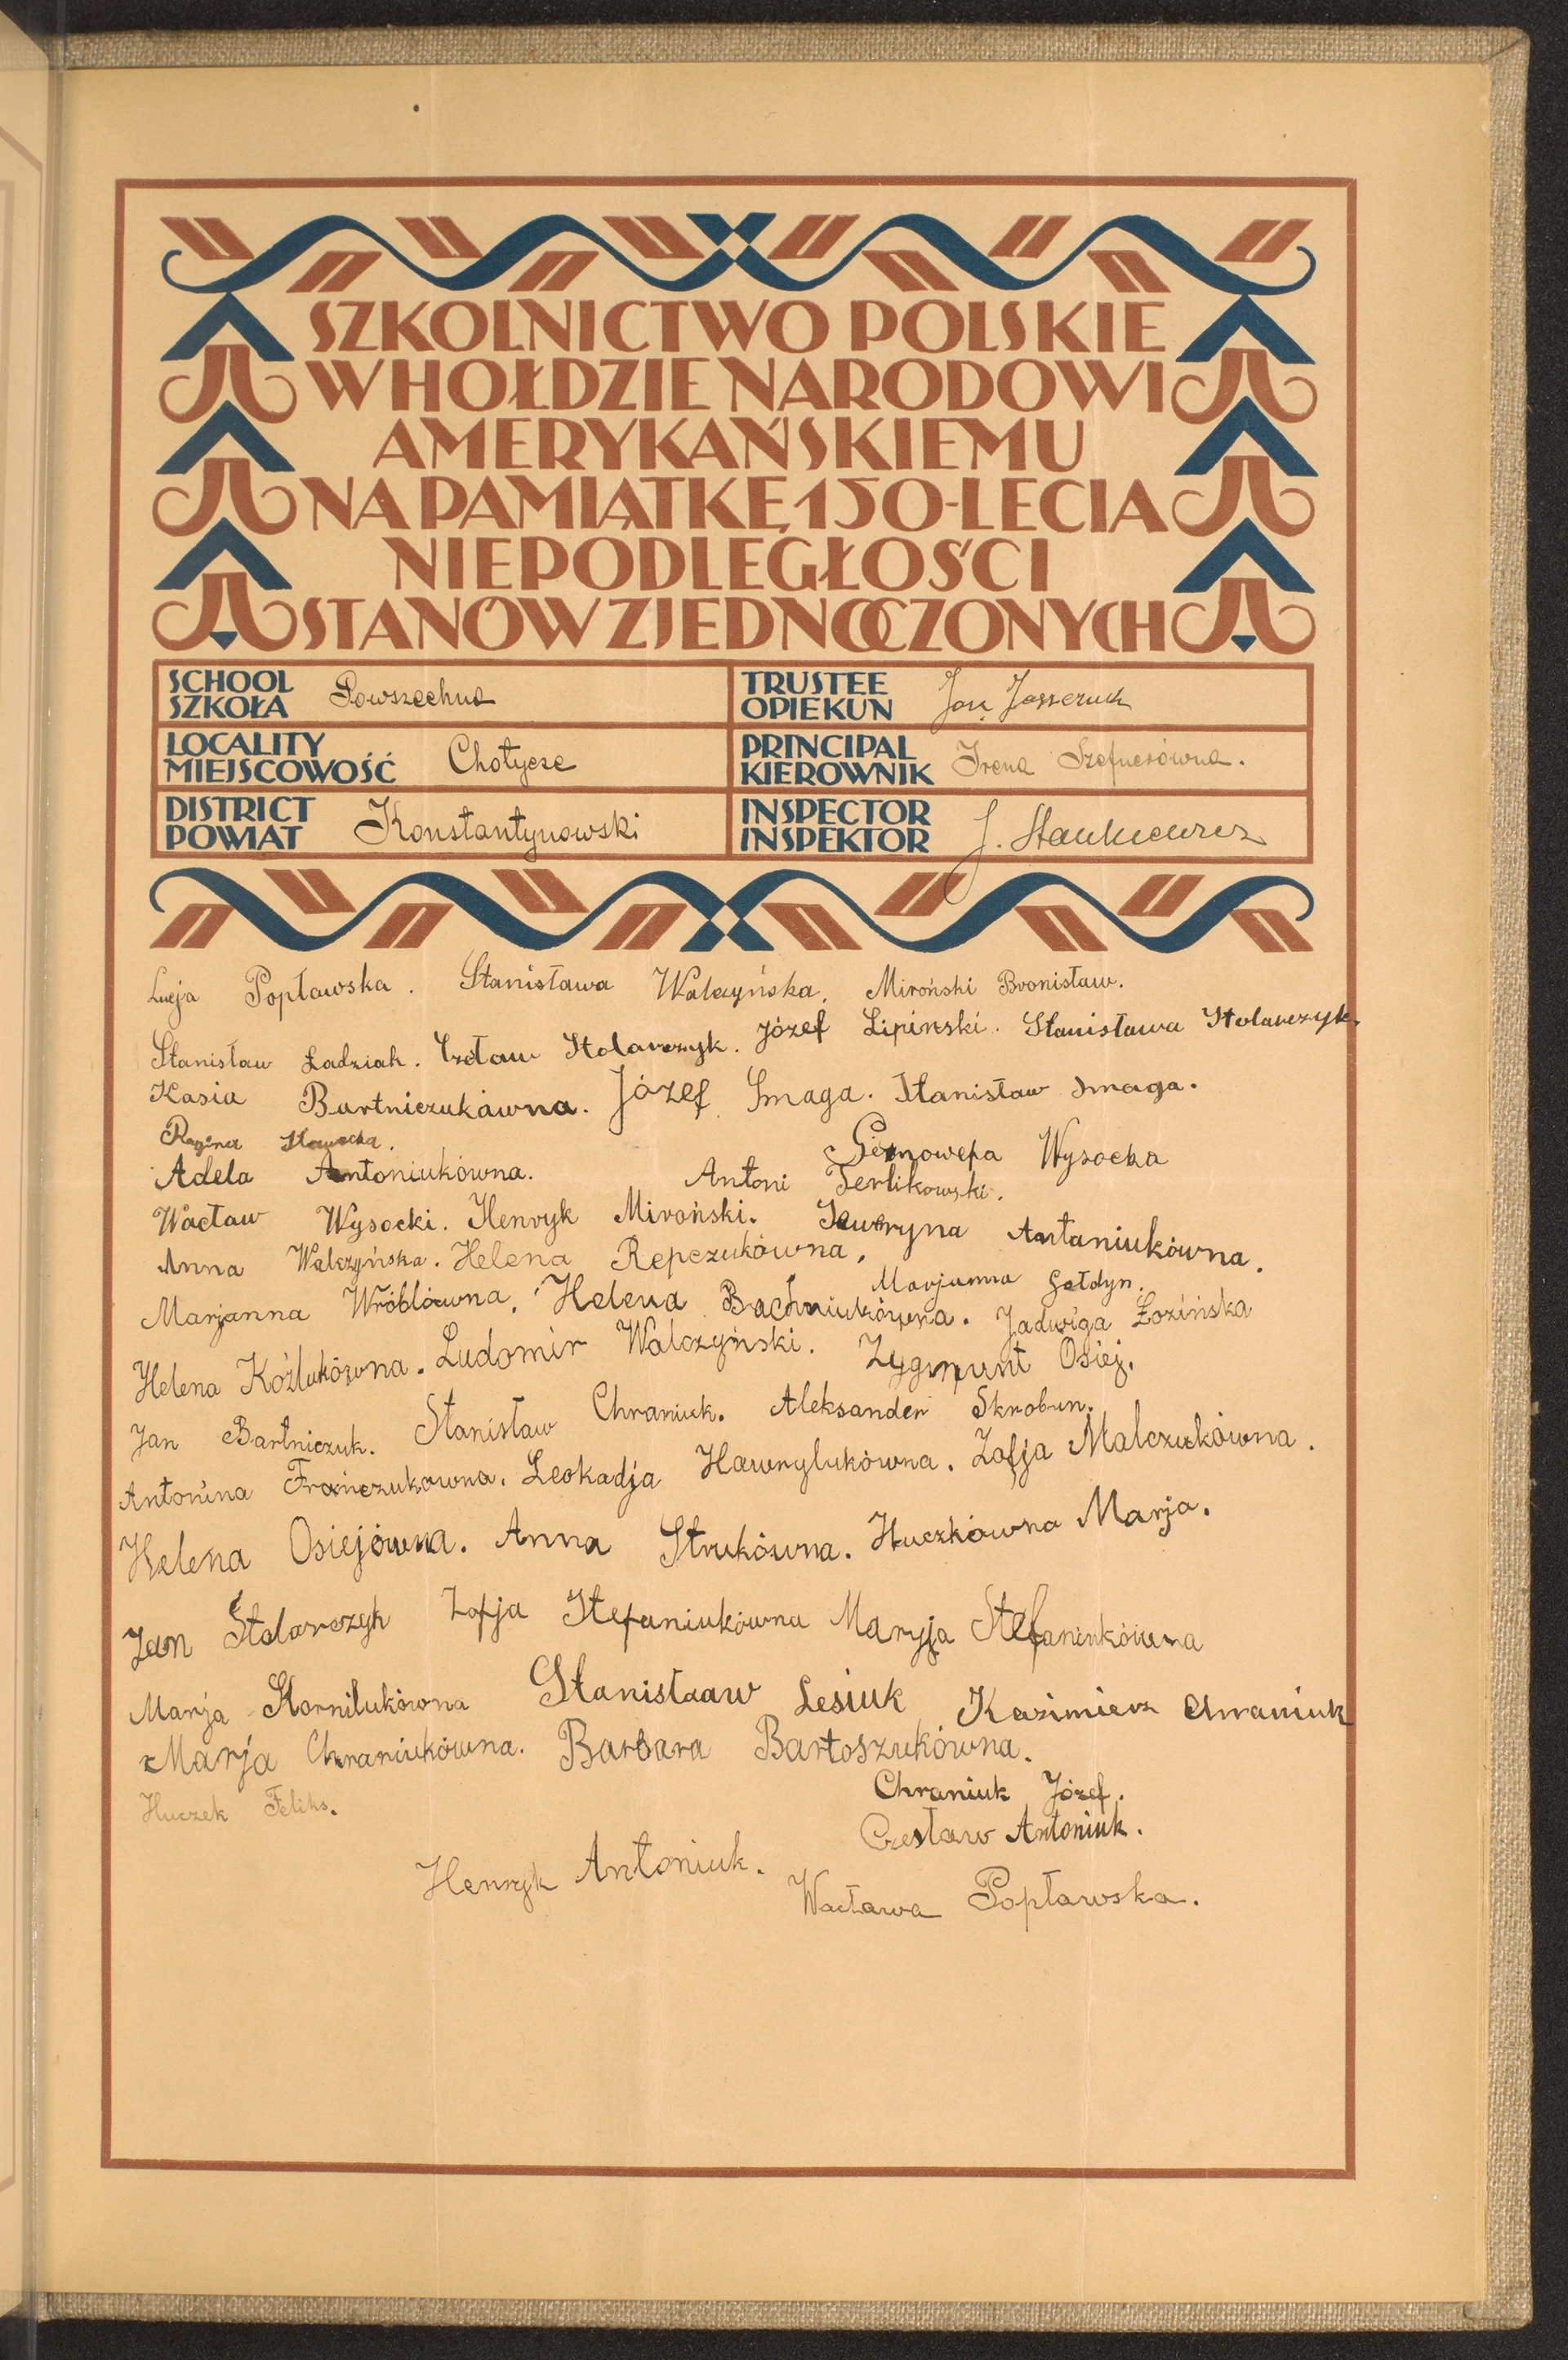 SZKOLNICTWO POLSKIE
W HOŁDZIE NARODOWI
AMERYKAŃSKIEMU
NA PAMIĄTKĘ 150-LECIA
NIEPODLEGŁOŚCI
STANÓW ZJEDNOCZONYCH
SCHOOL
SZKOŁA Powszechna
TRUSTEE
OPIEKUN Jan
LOCALITY
MIEJSCOWOŚĆ Chotycze
PRINCIPAL
KIEROWNIK Irena Szefnerówna.
DISTRICT
POWIAT Konstantynowski
INSPECTOR
INSPEKTOR J. Stankiewicz
Lucja Popławska. Stanisława Walczyńska. Miroński Bronisław.
Stanisław Ładziak. Czesław Stolarczyk. Józef Lipiński. Stanisława Stolarczyk.
Kasia Bartniczukówna. Józef Smaga. Stanisław Smaga.
Regina
Genowefa Wysocka
Adela Antoniukówna. Antoni Terlikowski.
Wacław Wysocki. Henryk Miroński. Seweryna Antaniukówna.
Anna Walczyńska. Helena Repczukówna.
Marjanna Gołdyn.
Marjanna Wróblówna. Helena Bachniukówna. Jadwiga Łozińska
Helena Koźlukówna. Ludomir Walczyński. Zygmunt Osiej.
Jan Bartniczuk. Stanisław Chraniuk. Aleksander Skrobun.
Antonina Frańczukowna. Leokadja Hawrylukówna. Zofja Malczukówna.
Helena Osiejówna. Anna Strukówna. Huczkówna Marja.
Jan Stolarczyk Zofja Stefaniukówna Maryja Stefaniukówna
Marja Kornilukówna Stanisłaaw Lesiuk Kazimierz Chraniuk
Marja Chraniukówna. Barbara Bartoszukówna.
Chraniuk Józef.
Huczek Feliks.
Czesław Antoniuk.
Henryk Antoniuk.
Wacława Popławska.